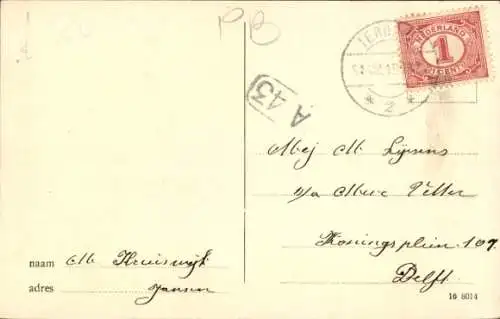 PB
NEDERLAND
1
CENT
2
A 43
Mej M. Lijsens
p/a Mevr Vetter
Koningsplein 107
Delft.
naam M. Kruiswijk
adres Jansen
16 6014